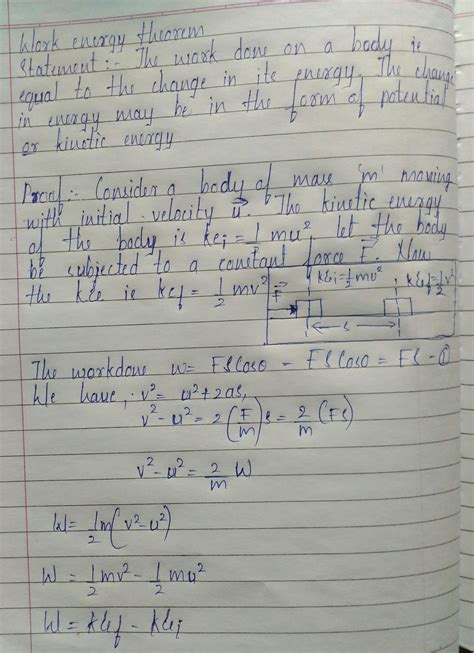 Work energy theorem
Statement :- The work done on a body is
equal to the change in its energy. The change
in energy may be in the form of potential
or kinetic energy
Proof :- Consider a body of mass 'm' moving
with initial velocity u⃗. The kinetic energy
of the body is kei = 1/2 mu² let the body
be subjected to a constant force F⃗. Now
the k.e is kef = 1/2 mv²
F⃗
kEi=1/2mu²
kEf=1/2v²
s
The workdone w= FSCoso - FSCoso = FS - ①
We have, v²= u²+2as,
v²-u² = 2(F/m)s = 2/m (Fs)
v²-u² = 2/m W
W= 1/2m(v²-u²)
W = 1/2mv² - 1/2mu²
W = kEf - kEi